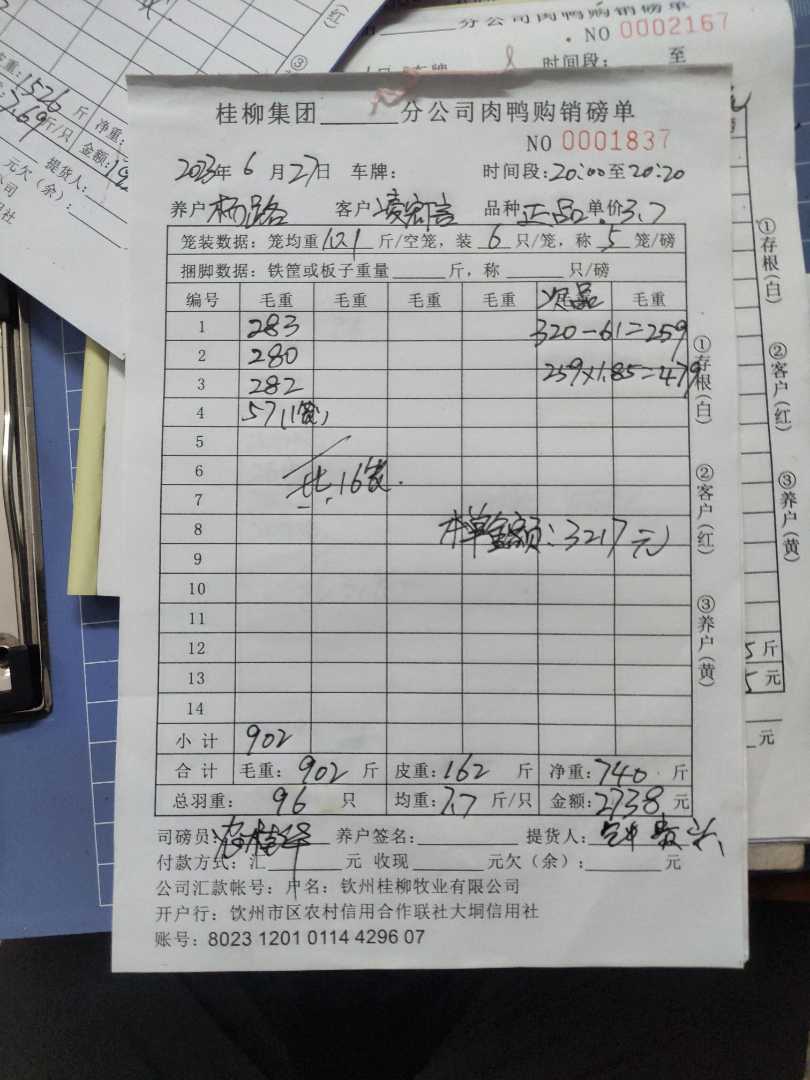 分公司肉鸭购销磅单
NO 0002167
时间段： 至
1526 斤 净重：
斤/只 金额：
提货人：
元欠（余）：
桂柳集团______分公司肉鸭购销磅单
NO 0001837
2023年 6 月 27日 车牌： 时间段：20:00至20:20
养户 杨路 客户 品种 正品 单价 3.7
笼装数据：笼均重 10.1 斤/空笼，装 6 只/笼，称 5 笼/磅
捆脚数据：铁筐或板子重量______斤，称______只/磅
编号 毛重 毛重 毛重 毛重 次品 毛重
1 283 320-61=259
2 280
3 282 259×1.85=479
4 57(1笼)
5
6
7 共16笼.
8 本单金额：3217元
9
10
11
12
13
14
小计 902
合计 毛重：902 斤 皮重：162 斤 净重：740 斤
总羽重： 96 只 均重：7.7 斤/只 金额：2738 元
司磅员： 养户签名：______ 提货人：
付款方式：汇______元 收现______元欠（余）：______元
公司汇款帐号：户名：钦州桂柳牧业有限公司
开户行：饮州市区农村信用合作联社大垌信用社
账号：8023 1201 0114 4296 07
①存根(白)
②客户(红)
③养户(黄)
①存根(白)
②客户(红)
③养户(黄)
斤
元
元